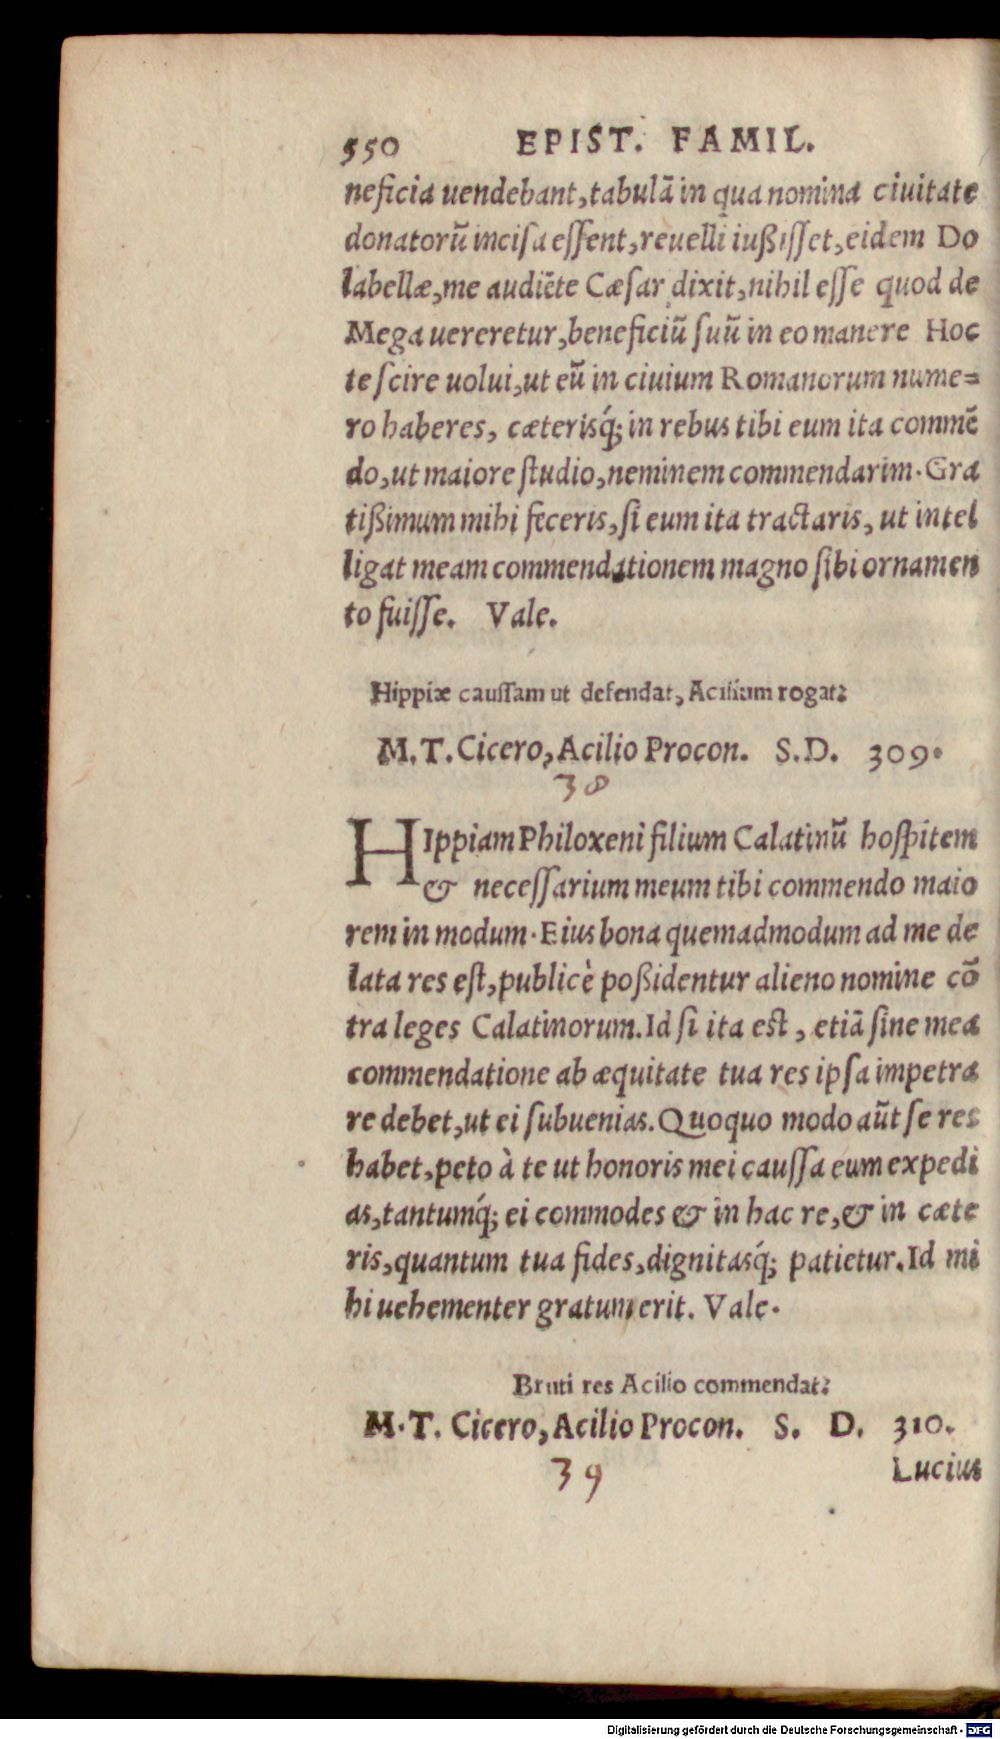 550 EPIST. FAMIL.
neficia uendebant, tabulā in qua nomina ciuitate
donatorū incisa essent, reuelli iußisset, eidem Do
labellæ, me audiēte Cæsar dixit, nihil esse quod de
Mega uereretur, beneficiū suū in eo manere Hoc
te scire uolui, ut eū in ciuium Romanorum nume=
ro haberes, cæterisq́; in rebus tibi eum ita commē
do, ut maiore studio, neminem commendarim. Gra
tißimum mihi feceris, si eum ita tractaris, ut intel
ligat meam commendationem magno sibi ornamen
to fuisse. Vale.
Hippiæ caussam ut defendat, Acilium rogat:
M. T. Cicero, Acilio Procon. S. D. 309.
38
HIppiam Philoxeni filium Calatinū hospitem
& necessarium meum tibi commendo maio
rem in modum. Eius bona quemadmodum ad me de
lata res est, publicè poßidentur alieno nomine cō
tra leges Calatinorum. Id si ita est, etiā sine mea
commendatione ab æquitate tua res ipsa impetra
re debet, ut ei subuenias. Quoquo modo aūt se res
habet, peto à te ut honoris mei caussa eum expedi
as, tantumq́; ei commodes & in hac re, & in cæte
ris, quantum tua fides, dignitasq́; patietur. Id mi
hi uehementer gratum erit. Vale.
Bruti res Acilio commendat:
M. T. Cicero, Acilio Procon. S. D. 310.
39
Lucius
Digitalisierung gefördert durch die Deutsche Forschungsgemeinschaft - DFG